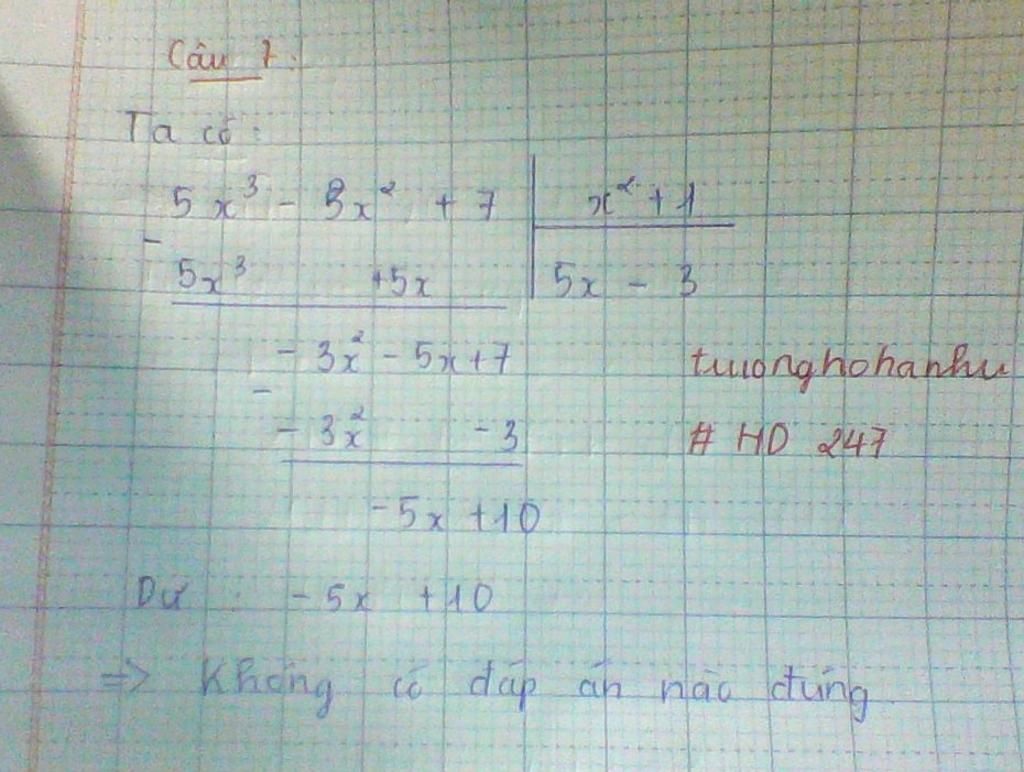 Câu 7:
Ta có:
5x³ - 3x² + 7 | x² + 1
- 5x³ +5x | 5x - 3
- 3x² - 5x + 7
- - 3x² - 3
- 5x + 10
tuionghohanhu
# HD 247
Dư : - 5x + 10
=> Không có đáp án nào đúng